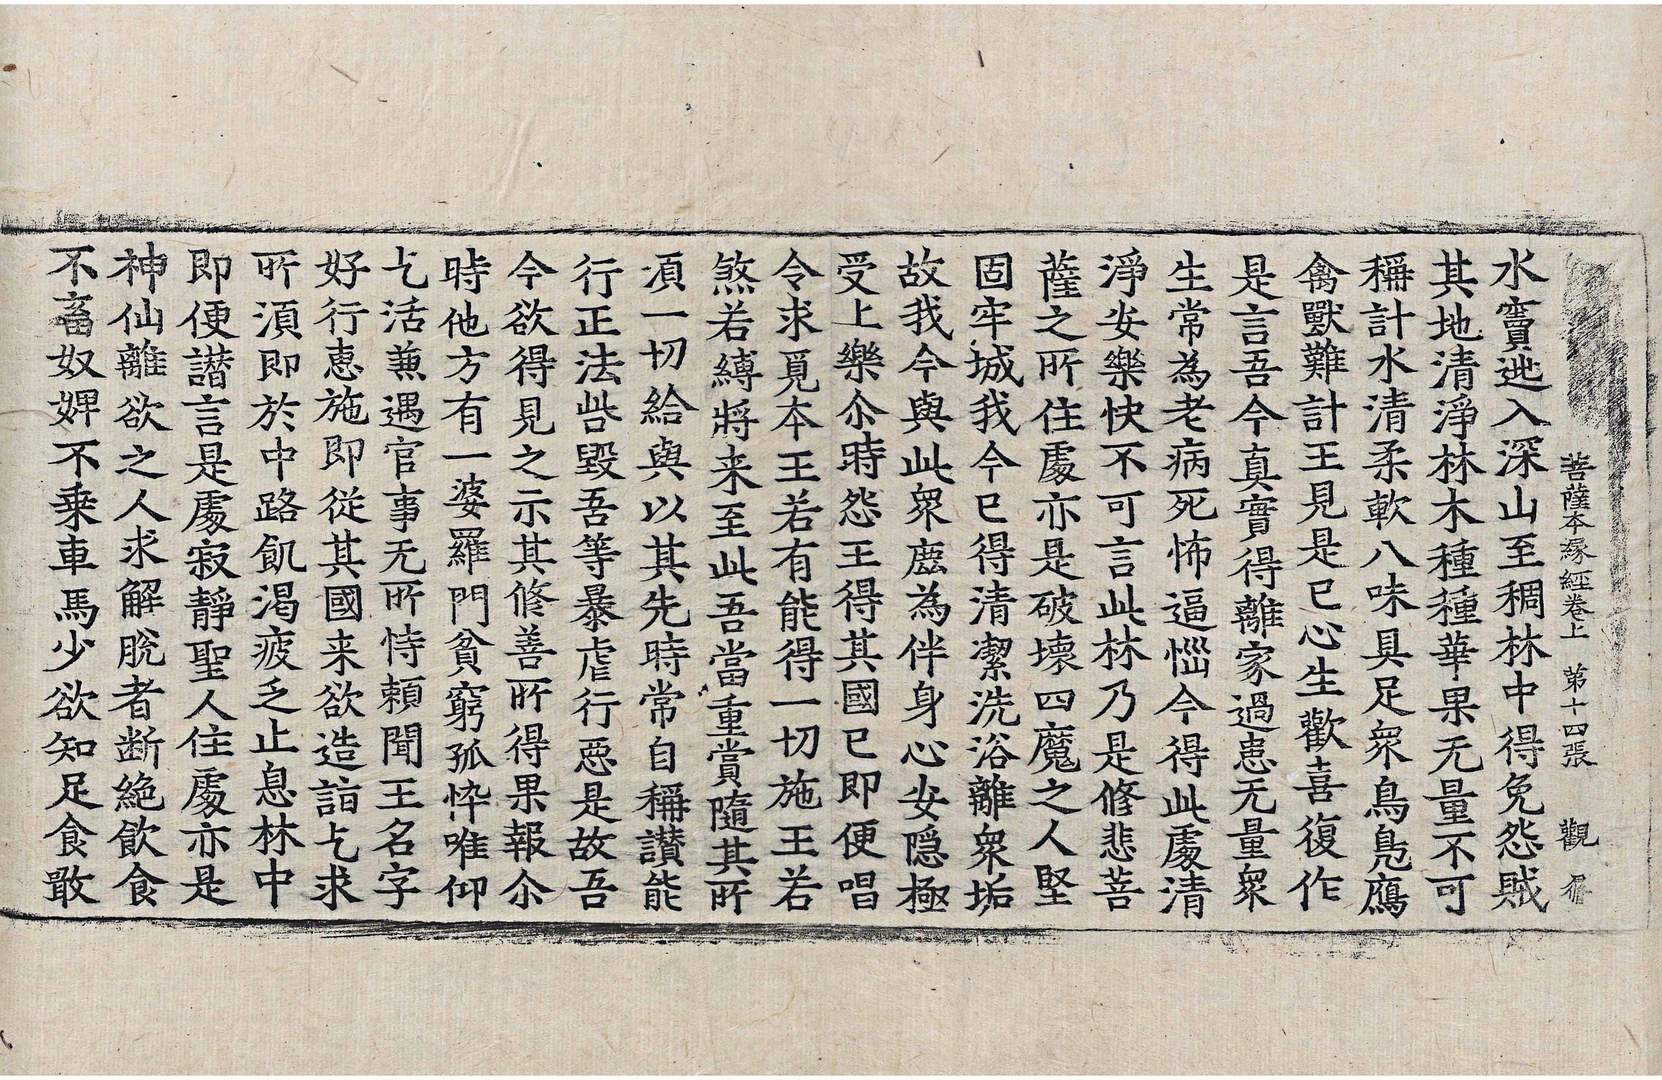 菩薩本緣經卷上 第十四張 觀
水竇逃入深山至稠林中得免怨賊
其地清淨林木種種華果无量不可
稱計水清柔軟八味具足衆鳥鳧鴈
禽獸難計王見是已心生歡喜復作
是言吾今真實得離家過患无量衆
生常為老病死怖逼惱今得此處清
淨安樂快不可言此林乃是修悲菩
薩之所住處亦是破壞四魔之人堅
固牢城我今已得清潔洗浴離衆垢
故我今與此衆鹿為伴身心安隱極
受上樂尒時怨王得其國已即便唱
令求覓本王若有能得一切施王若
煞若縛將来至此吾當重賞隨其所
湏一切給與以其先時常自稱讃能
行正法呰毀吾等暴虐行惡是故吾
今欲得見之示其修善所得果報尒
時他方有一婆羅門貧窮孤悴唯仰
乞活兼遇官事无所恃頼聞王名字
好行惠施即從其國来欲造詣乞求
所湏即於中路飢渴疲乏止息林中
即便讃言是處寂靜聖人住處亦是
神仙離欲之人求解脫者断絶飲食
不畜奴婢不乗車馬少欲知足食噉